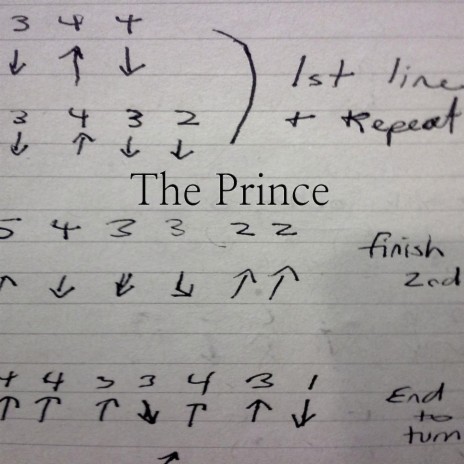 3 4 4
↓ ↑ ↓
1st line
3 4 3 2
+ Repeat
↓ ↑ ↓ ↓
The Prince
5 4 3 3 2 2
finish
↑ ↓ ↓ ↓ ↑ ↑
2nd
4 4 3 3 4 3 1
End
↑ ↑ ↑ ↓ ↑ ↑ ↓
to
turn